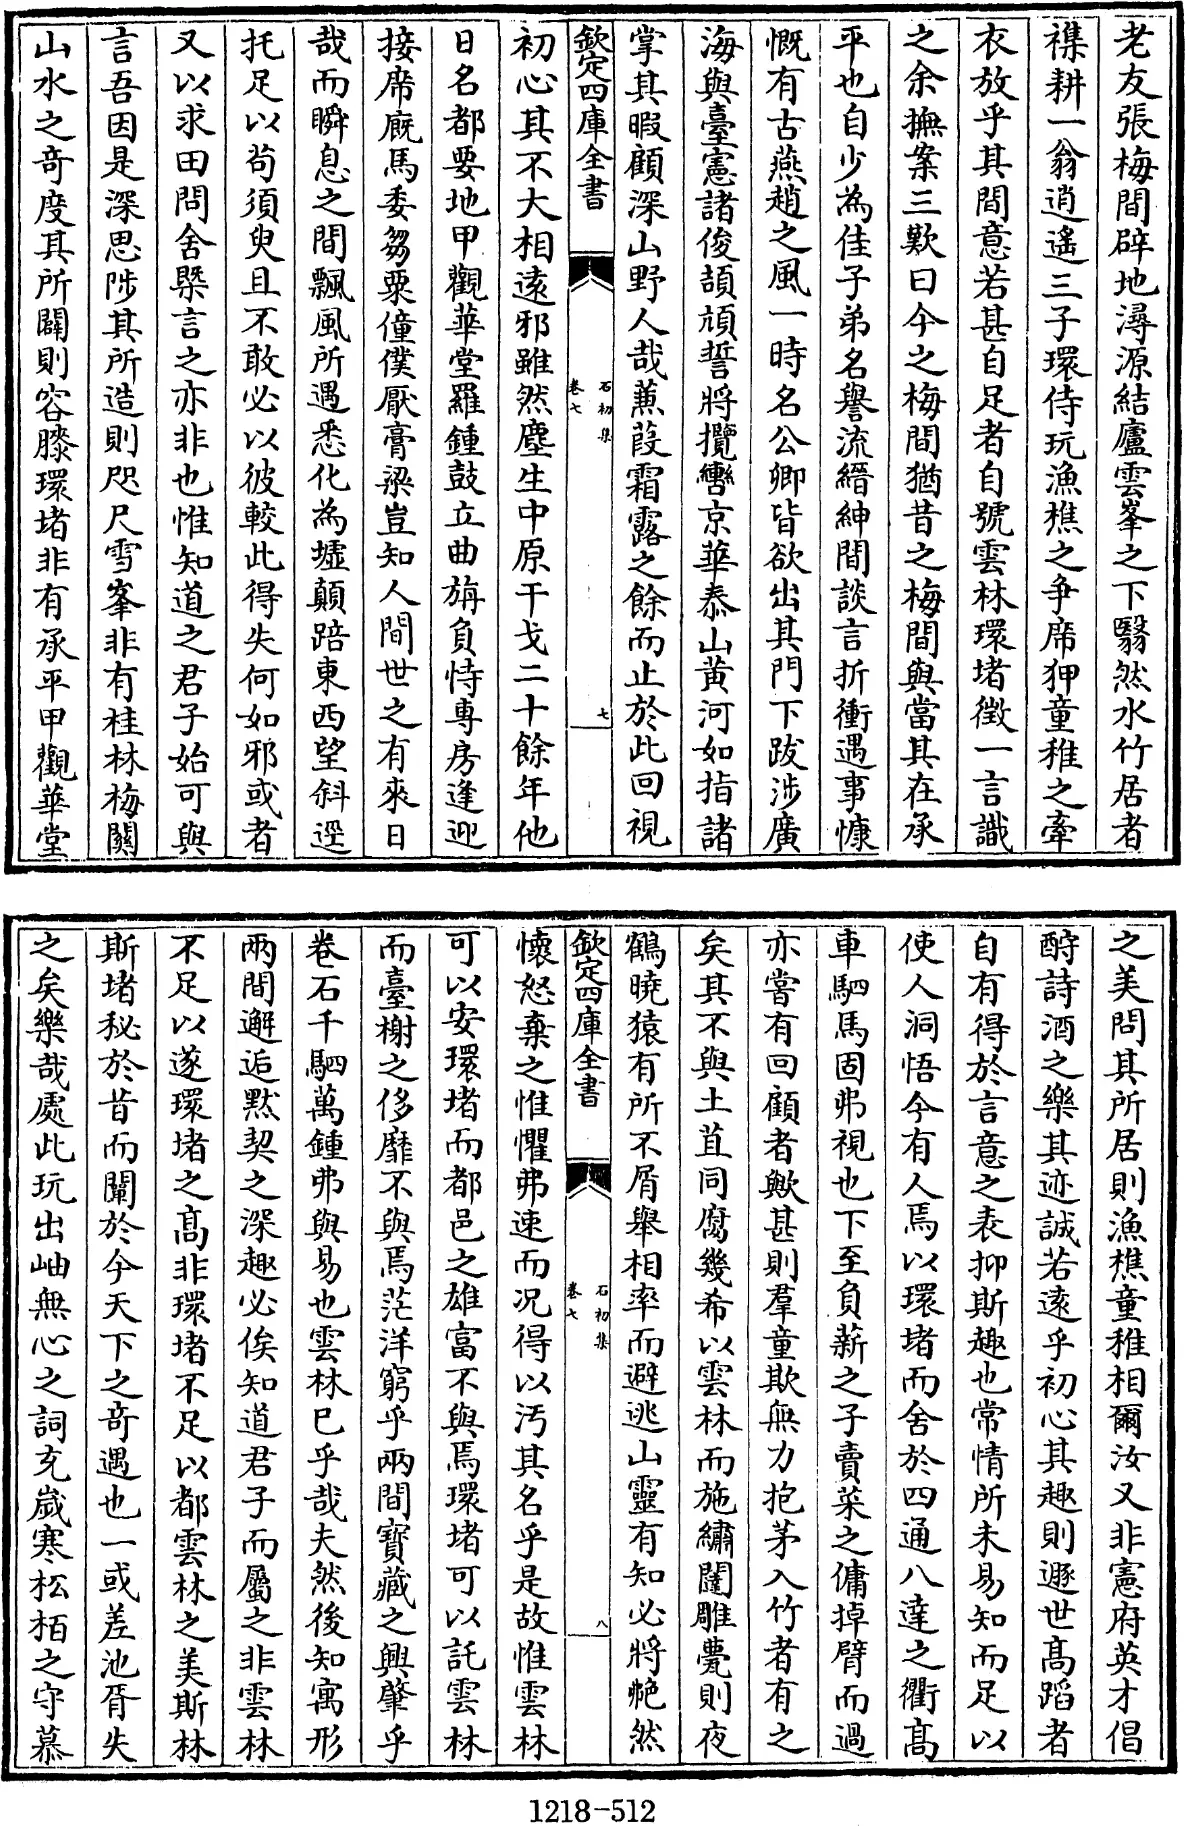 老友張梅間辟地潯源結廬雲峯之下翳然水竹居者
襟耕一翁逍遙三子環侍玩漁樵之爭席狎童稚之牽
衣放乎其間意若甚自足者自號雲林環堵徵一言識
之余撫案三歎曰今之梅間猶昔之梅間與當其在承
平也自少為佳子弟名譽流縉紳間談言折衝遇事慷
慨有古燕趙之風一時名公卿皆欲出其門下跋涉廣
海與臺憲諸俊頡頏誓將攬轡京華泰山黄河如指諸
掌其暇顧深山野人哉蒹葭霜露之餘而止於此回視
欽定四庫全書
石初集
卷七
七
初心其不大相遠邪雖然塵生中原干戈二十餘年他
日名都要地甲觀華堂羅鍾鼓立曲旃負恃專房逢迎
接席廐馬委芻粟僮僕厭膏粱豈知人間世之有來日
哉而瞬息之間飄風所遇悉化為墟顛踣東西望斜逕
托足以苟須臾且不敢必以彼較此得失何如邪或者
又以求田問舍槩言之亦非也惟知道之君子始可與
言吾因是深思陟其所造則咫尺雪峯非有桂林梅關
山水之奇度其所闢則容膝環堵非有承平甲觀華堂
之美問其所居則漁樵童稚相爾汝又非憲府英才倡
酧詩酒之樂其迹誠若遠乎初心其趣則遯世髙蹈者
自有得於言意之表抑斯趣也常情所未易知而足以
使人洞悟今有人焉以環堵而舍於四通八達之衢髙
車駟馬固弗視也下至負薪之子賣菜之傭掉臂而過
亦嘗有回顧者歟甚則羣童欺無力抱茅入竹者有之
矣其不與土苴同腐幾希以雲林而施繡闥雕甍則夜
鶴曉猿有所不屑舉相率而避逃山靈有知必將艴然
欽定四庫全書
石初集
卷七
八
懷怒棄之惟懼弗速而况得以汚其名乎是故惟雲林
可以安環堵而都邑之雄富不與焉環堵可以託雲林
而臺榭之侈靡不與焉茫洋窮乎兩間寶藏之興肇乎
卷石千駟萬鍾弗與易也雲林已乎哉夫然後知寓形
兩間邂逅黙契之深趣必俟知道君子而屬之非雲林
不足以遂環堵之髙非環堵不足以都雲林之美斯林
斯堵秘於昔而闡於今天下之奇遇也一或差池胥失
之矣樂哉處此玩出岫無心之詞充嵗寒松栢之守慕
1218-512